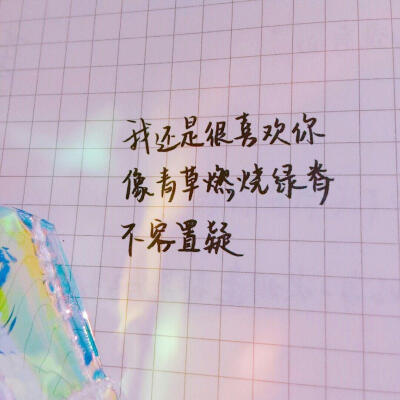 我还是很喜欢你
像青草燃烧绿脊
不容置疑